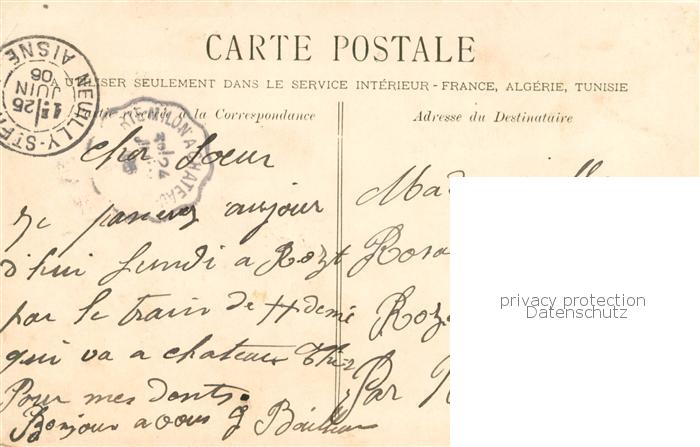 CARTE POSTALE
A UTILISER SEULEMENT DANS LE SERVICE INTÉRIEUR - FRANCE, ALGÉRIE, TUNISIE
Partie réservée a la Correspondance
Adresse du Destinataire
NEUILLY-ST-F
AISNE
25
JUIN
06
MILON A CHATEAU
Cher Soeur
aujour
d'hui Lundi a Rozt
par le train de demi
qui va a chateau Thier
Pour mes dents.
Bonjour a vous
Rosa
Roze
Par
privacy protection
Datenschutz